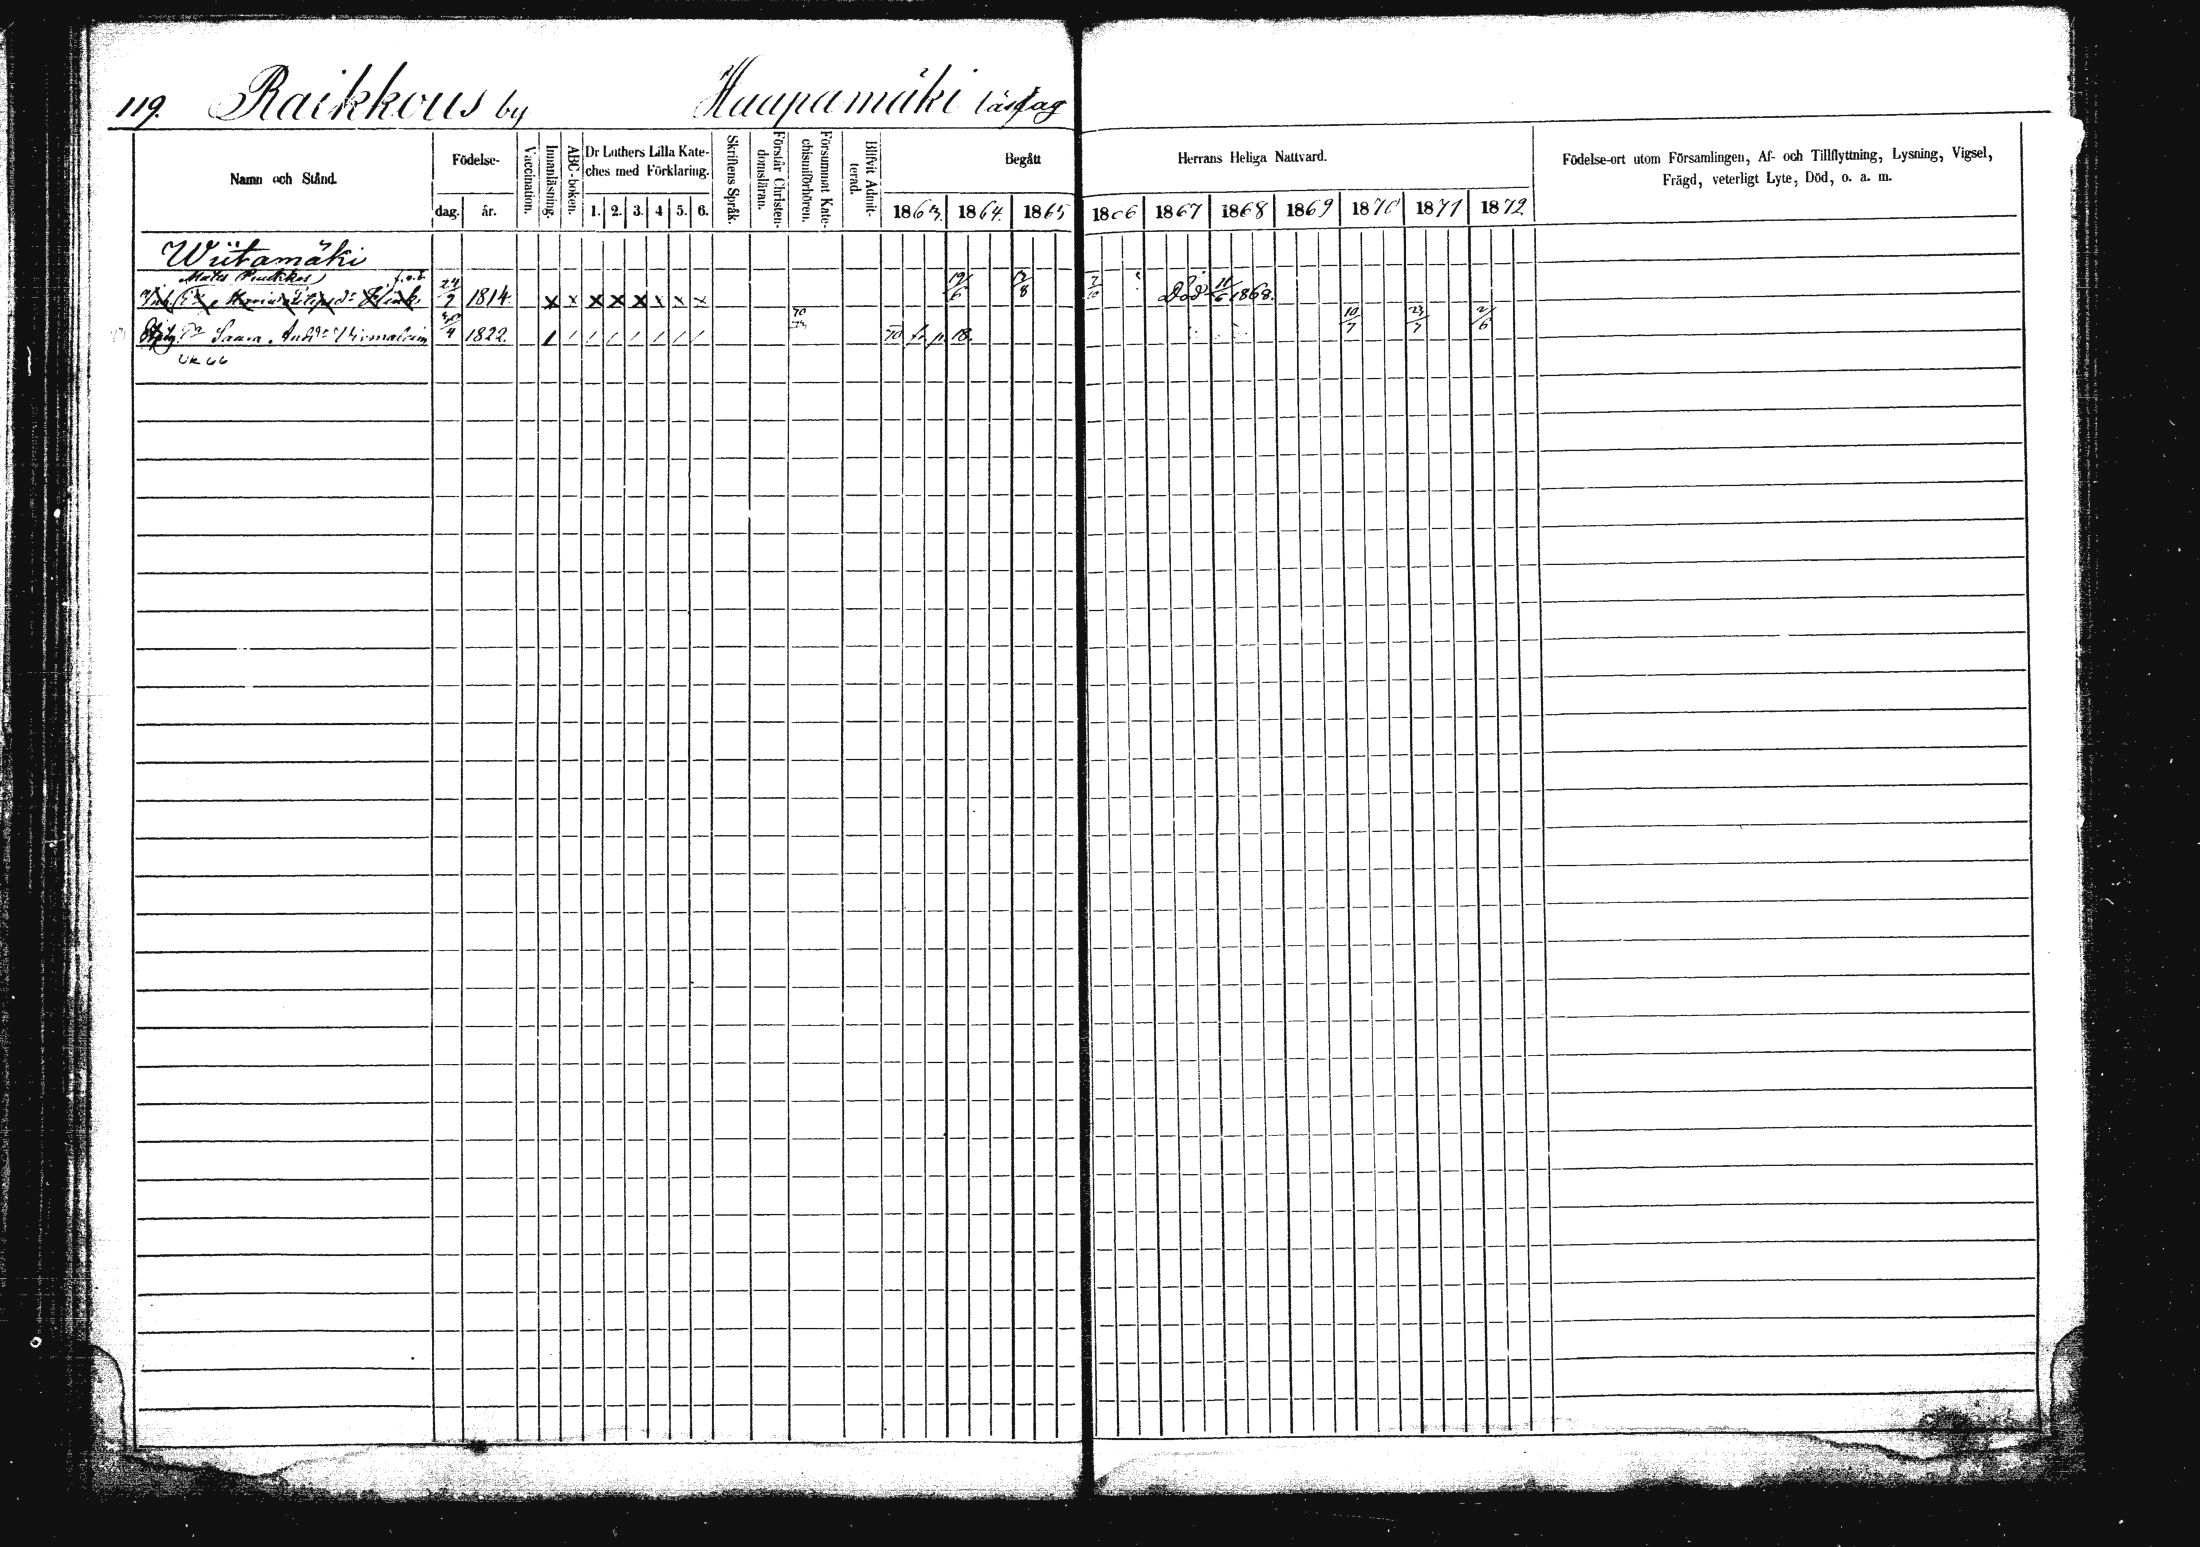 119. Raikkous by Haapamäki läslag
Namn och Stånd.
Födelse-
dag. år.
Vaccination.
Innanläsning.
ABC-boken.
Dr Luthers Lilla Kate-
ches med Förklaring.
1. 2. 3. 4 5. 6.
Skriftens Språk.
Förstår Christen-
domsläran.
Försummat Kate-
chismiförhören.
Blifvit Admit-
terad.
Begått Herrans Heliga Nattvard.
1863. 1864. 1865 1866 1867 1868 1869 1870 1871 1872
Födelse-ort utom Församlingen, Af- och Tillflyttning, Lysning, Vigsel,
Frägd, veterligt Lyte, Död, o. a. m.
Wiitamäki
24/2 1814. x x x x x x x x 19/6 Död 11/6 1868.
Saara 4 1822. / / / / / / / / 70 fr. p. 18. 10/7 23/7 2/6